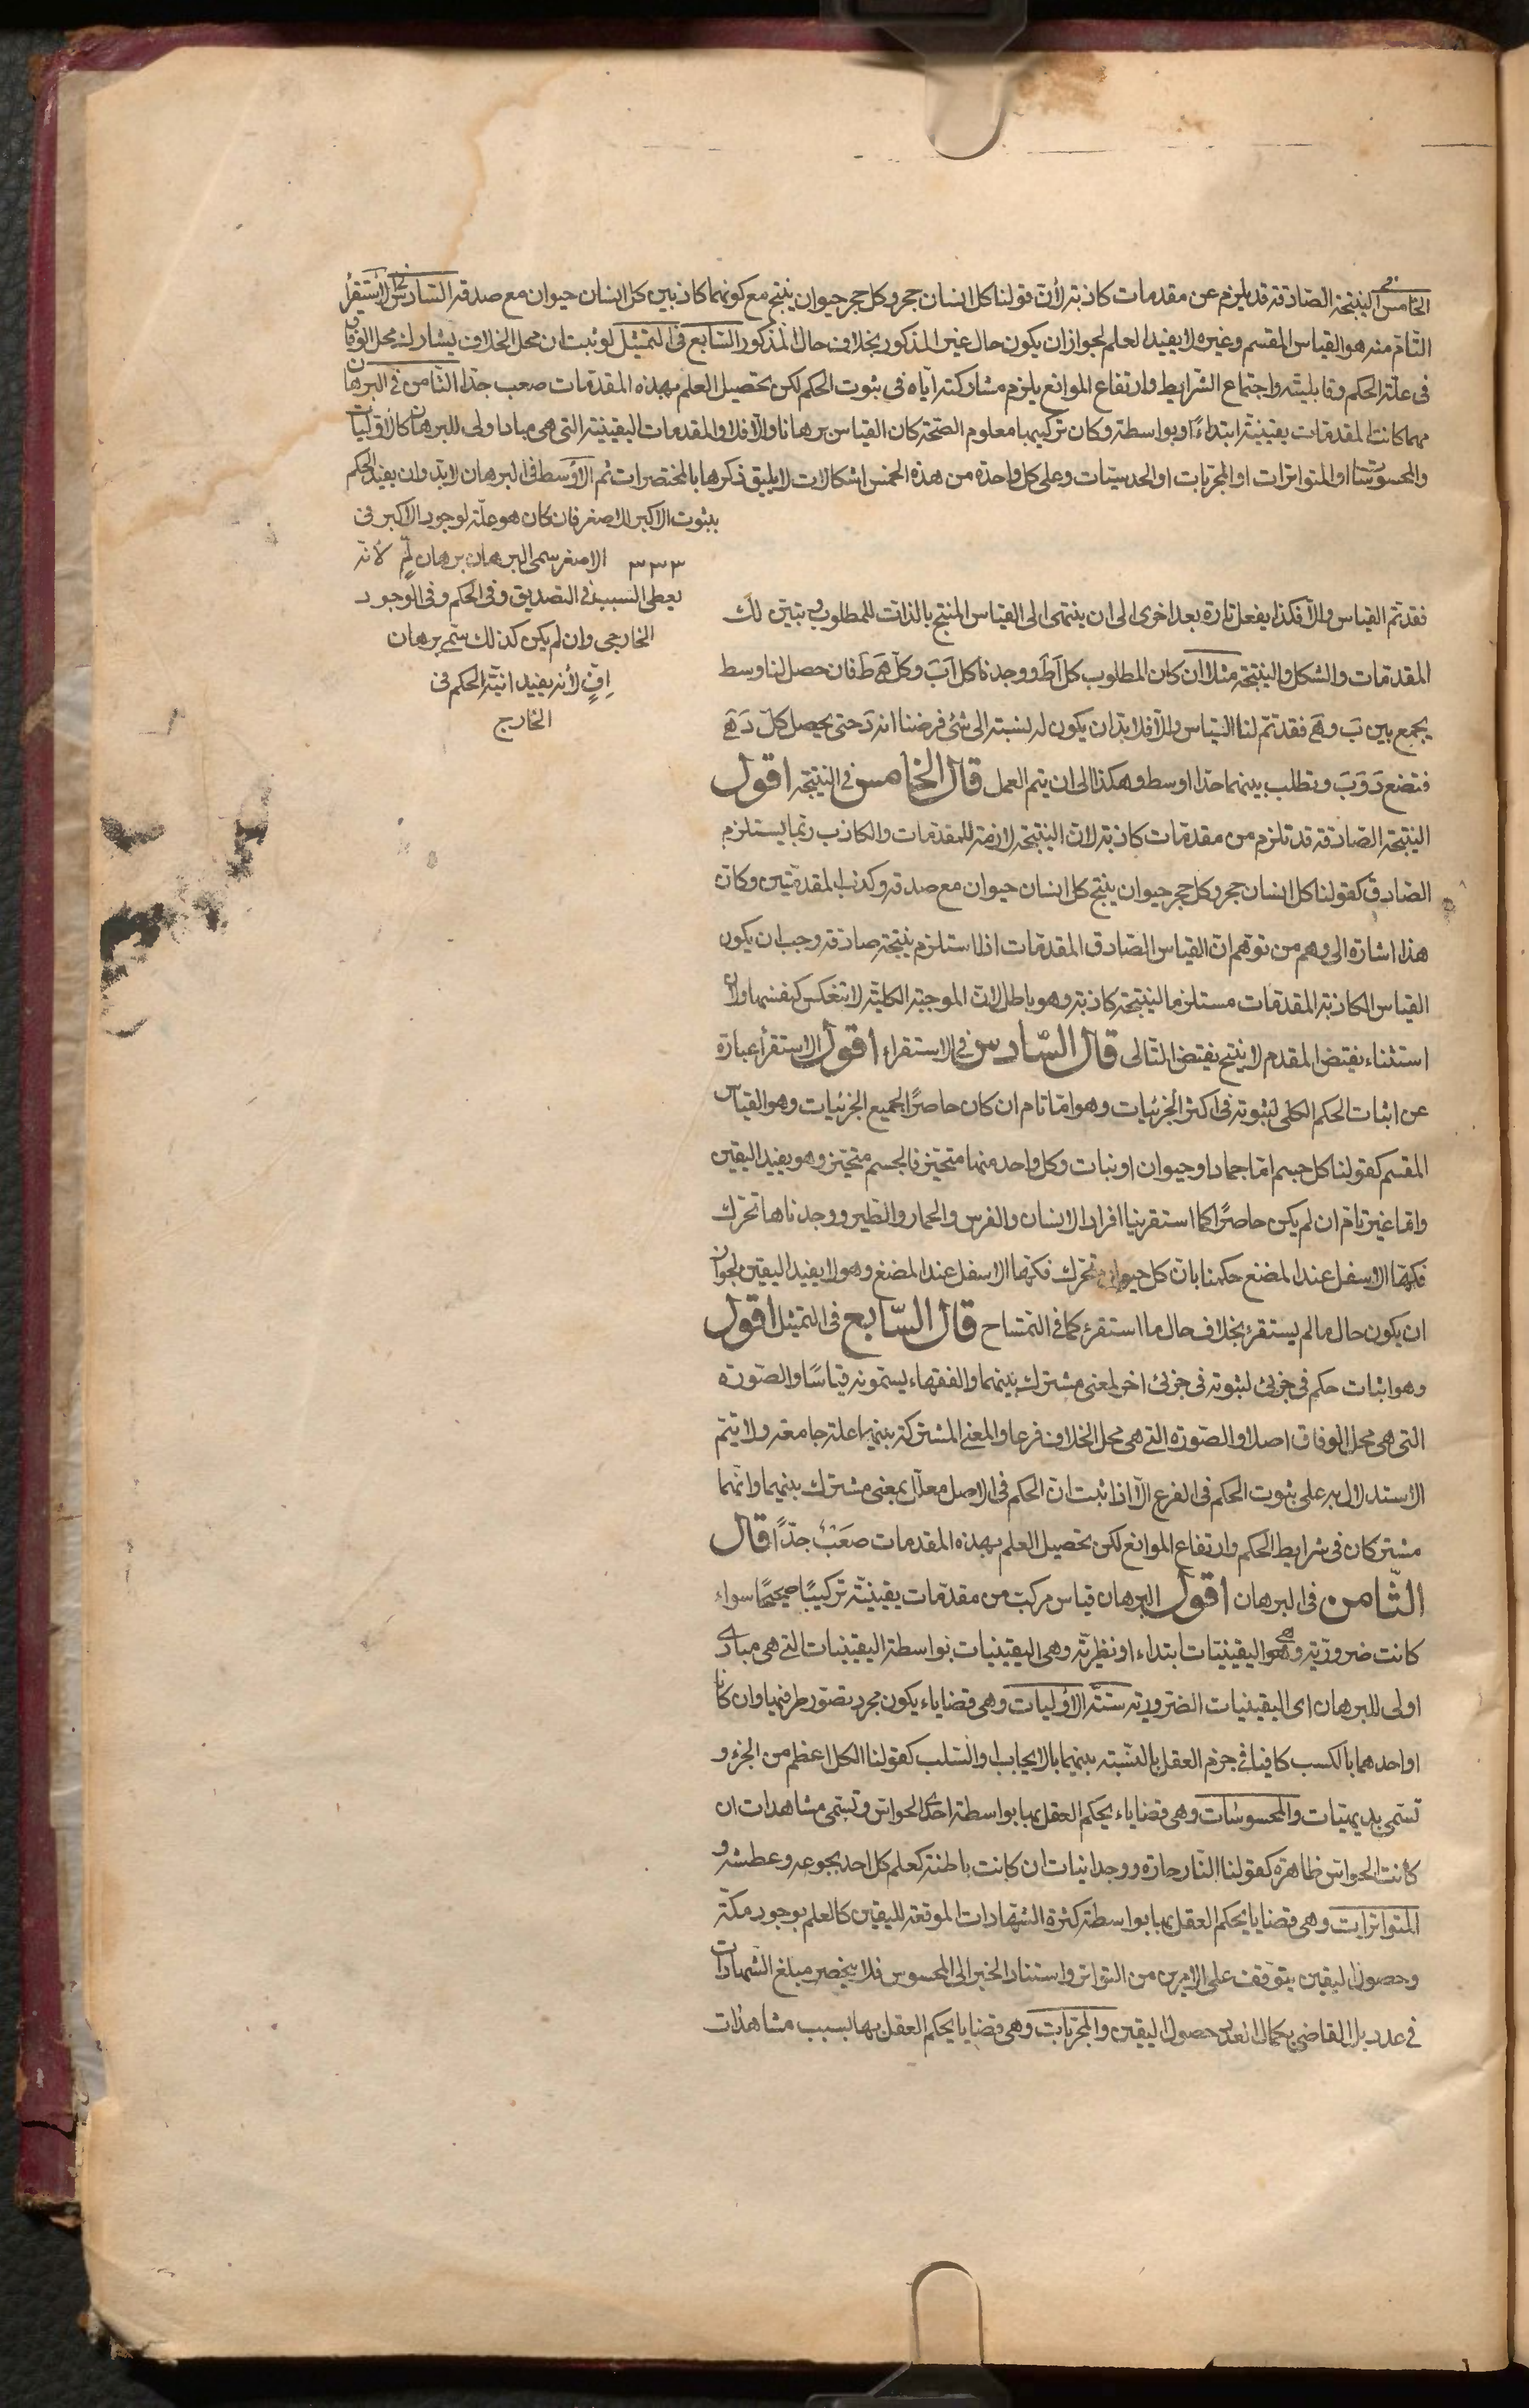 الخامس النتيجة الصادقة قد يلزم عن مقدمات كاذبة لأن قولنا كل انسان حجر وكل حجر حيوان ينتج مع كونهما كاذبين كل انسان حيوان مع صدقه السادس الاستقراء
التام منه هو القياس المقسم وغيره لا يفيد العلم لجواز ان يكون حال غير المذكور بخلاف حال المذكور السابع في التمثيل لو ثبت ان محل الخلاف يشارك محل الوفاق
في علة الحكم وقابليته واجتماع الشرايط وارتفاع الموانع يلزم مشاركته اياه في ثبوت الحكم لكن تحصيل العلم بهذه المقدمات صعب جدا الثامن في البرهان
مهما كانت المقدمات يقينية ابتداءً او بواسطة وكان تركيبها معلوم الصحة كان القياس برهانا والا فلا والمقدمات اليقينية التي هي مبادا ولى للبرهان كالاوليات
والمحسوسات او المتواترات او المجربات او الحدسيات وعلى كل واحدة من هذه الخمس اشكالات لا يليق ذكرها بالمختصرات ثم الأوسط في البرهان لابد وان يفيد الحكم
بثبوت الاكبر للاصغر فان كان هو علة لوجود الاكبر في
الاصغر سمى البرهان برهان لم لأنه
يعطى السبب في التصديق وفي الحكم وفي الوجود
الخارجي وان لم يكن كذلك سمى برهان
انٍّ لأنه يفيد انية الحكم في
الخارج
فقد تم القياس والا فكذا يفعل تارة بعد اخرى الى ان ينتهى الى القياس المنتج بالذات للمطلوب ويتبين لك
المقدمات والشكل والنتيجة مثلا ان كان المطلوب كل اَ طَ ووجدنا كل اَ بَ وكل هَ طَ فان حصل لنا وسط
يجمع بين بَ وهَ فقد تم لنا القياس والا فلابد ان يكون له نسبة الى شئ فرضنا انه دَ حتى يحصل كل دَ هَ
فتضع دَ وبَ وتطلب بينهما حدا اوسط وهكذا الى ان يتم العمل قال الخامس في النتيجة اقول
النتيجة الصادقة قد تلزم من مقدمات كاذبة لان النتيجة لازمة للمقدمات والكاذب ربما يستلزم
الصادق كقولنا كل انسان حجر وكل حجر حيوان ينتج كل انسان حيوان مع صدقه وكذب المقدمتين وكان
هذا اشارة الى وهم من توهم ان القياس الصادق المقدمات اذا استلزم نتيجة صادقة وجب ان يكون
القياس الكاذبة المقدمات مستلزما لنتيجة كاذبة وهو باطل لان الموجبة الكلية لا تنعكس كنفسها ولان
استثناء نقيض المقدم لا ينتج نقيض التالى قال السادس في الاستقراء اقول الاستقرأ عبارة
عن اثبات الحكم الكلى لثبوته في اكثر الجزئيات وهو اما تام ان كان حاصرًا لجميع الجزئيات وهو القياس
المقسم كقولنا كل جسم اما جماد او حيوان او نبات وكل واحد منها متحيز فالجسم متحيز وهو يفيد اليقين
واما غير تام ان لم يكن حاصرًا كما استقرينا افراد الانسان والفرس والحمار والطير ووجدناها تحرك
فكها الاسفل عند المضغ حكمنا بان كل حيوان تحرك فكها الاسفل عند المضغ وهو لا يفيد اليقين لجواز
ان يكون حال ما لم يستقرئ بخلاف حال ما استقرئ كما في التمساح قال السابع في التمثيل اقول
وهو اثبات حكم في جزئى لثبوته في جزئى اخر لمعنى مشترك بينهما والفقهاء يسمونه قياسًا والصورة
التى هي محل الوفاق اصلا والصورة التى هي محل الخلاف فرعا والمعنى المشتركة بينهما علة جامعة ولا يتم
الاستدلال به على ثبوت الحكم في الفرع الا اذا ثبت ان الحكم في الاصل معلل بمعنى مشترك بينهما وانهما
مشتركان في شرايط الحكم وارتفاع الموانع لكن تحصيل العلم بهذه المقدمات صَعْبٌ جدًّا قال
الثامن في البرهان اقول البرهان قياس مركب من مقدمات يقينية تركيبًا صحيحًا سواء
كانت ضرورية وهي اليقينيات ابتداء او نظرية وهي اليقينيات بواسطة اليقينيات التى هي مبادى
اولى للبرهان اى اليقينيات الضرورية ستة الأوليات وهي قضاياء يكون مجرد تصور طرفيها وان كانا
او احدهما بالكسب كافيا في جزم العقل بالنسبة بينهما بالايجاب او السلب كقولنا الكل اعظم من الجزء و
تسمى بديهيات والمحسوسات وهي قضاياء يحكم العقل بها بواسطة احدى الحواس وتسمى مشاهدات ان
كانت الحواس ظاهرة كقولنا النار حارة ووجدانيات ان كانت باطنة كعلم كل احد بجوعه وعطشه و
المتواترات وهي قضايا يحكم العقل بها بواسطة كثرة الشهادات الموقعة لليقين كالعلم بوجود مكة
وحصول اليقين يتوقف على الامرين من التواتر واستناد الخبر الى المحسوس فلا ينحصر مبلغ الشهادات
في عدد بل القاضى بكمال العدد حصول اليقين والمجربات وهي قضايا يحكم العقل بها بسبب مشاهدات